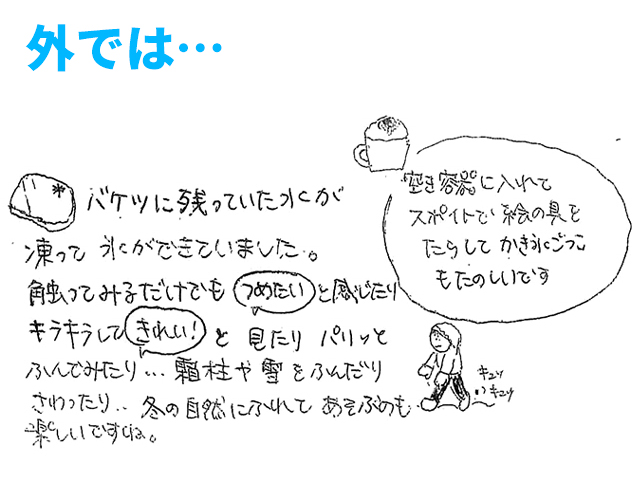 外では…
バケツに残っていた水が
凍って 氷ができていました。
触ってみるだけでも つめたい と感じたり
キラキラして きれい! と 見たり パリッと
ふんでみたり… 霜柱や雪をふんだり
さわったり‥ 冬の自然にふれて あそぶのも
楽しいですね。
空き容器に入れて
スポイトで 絵の具を
たらして かき氷ごっこ
もたのしいです
キュッ
キュッ